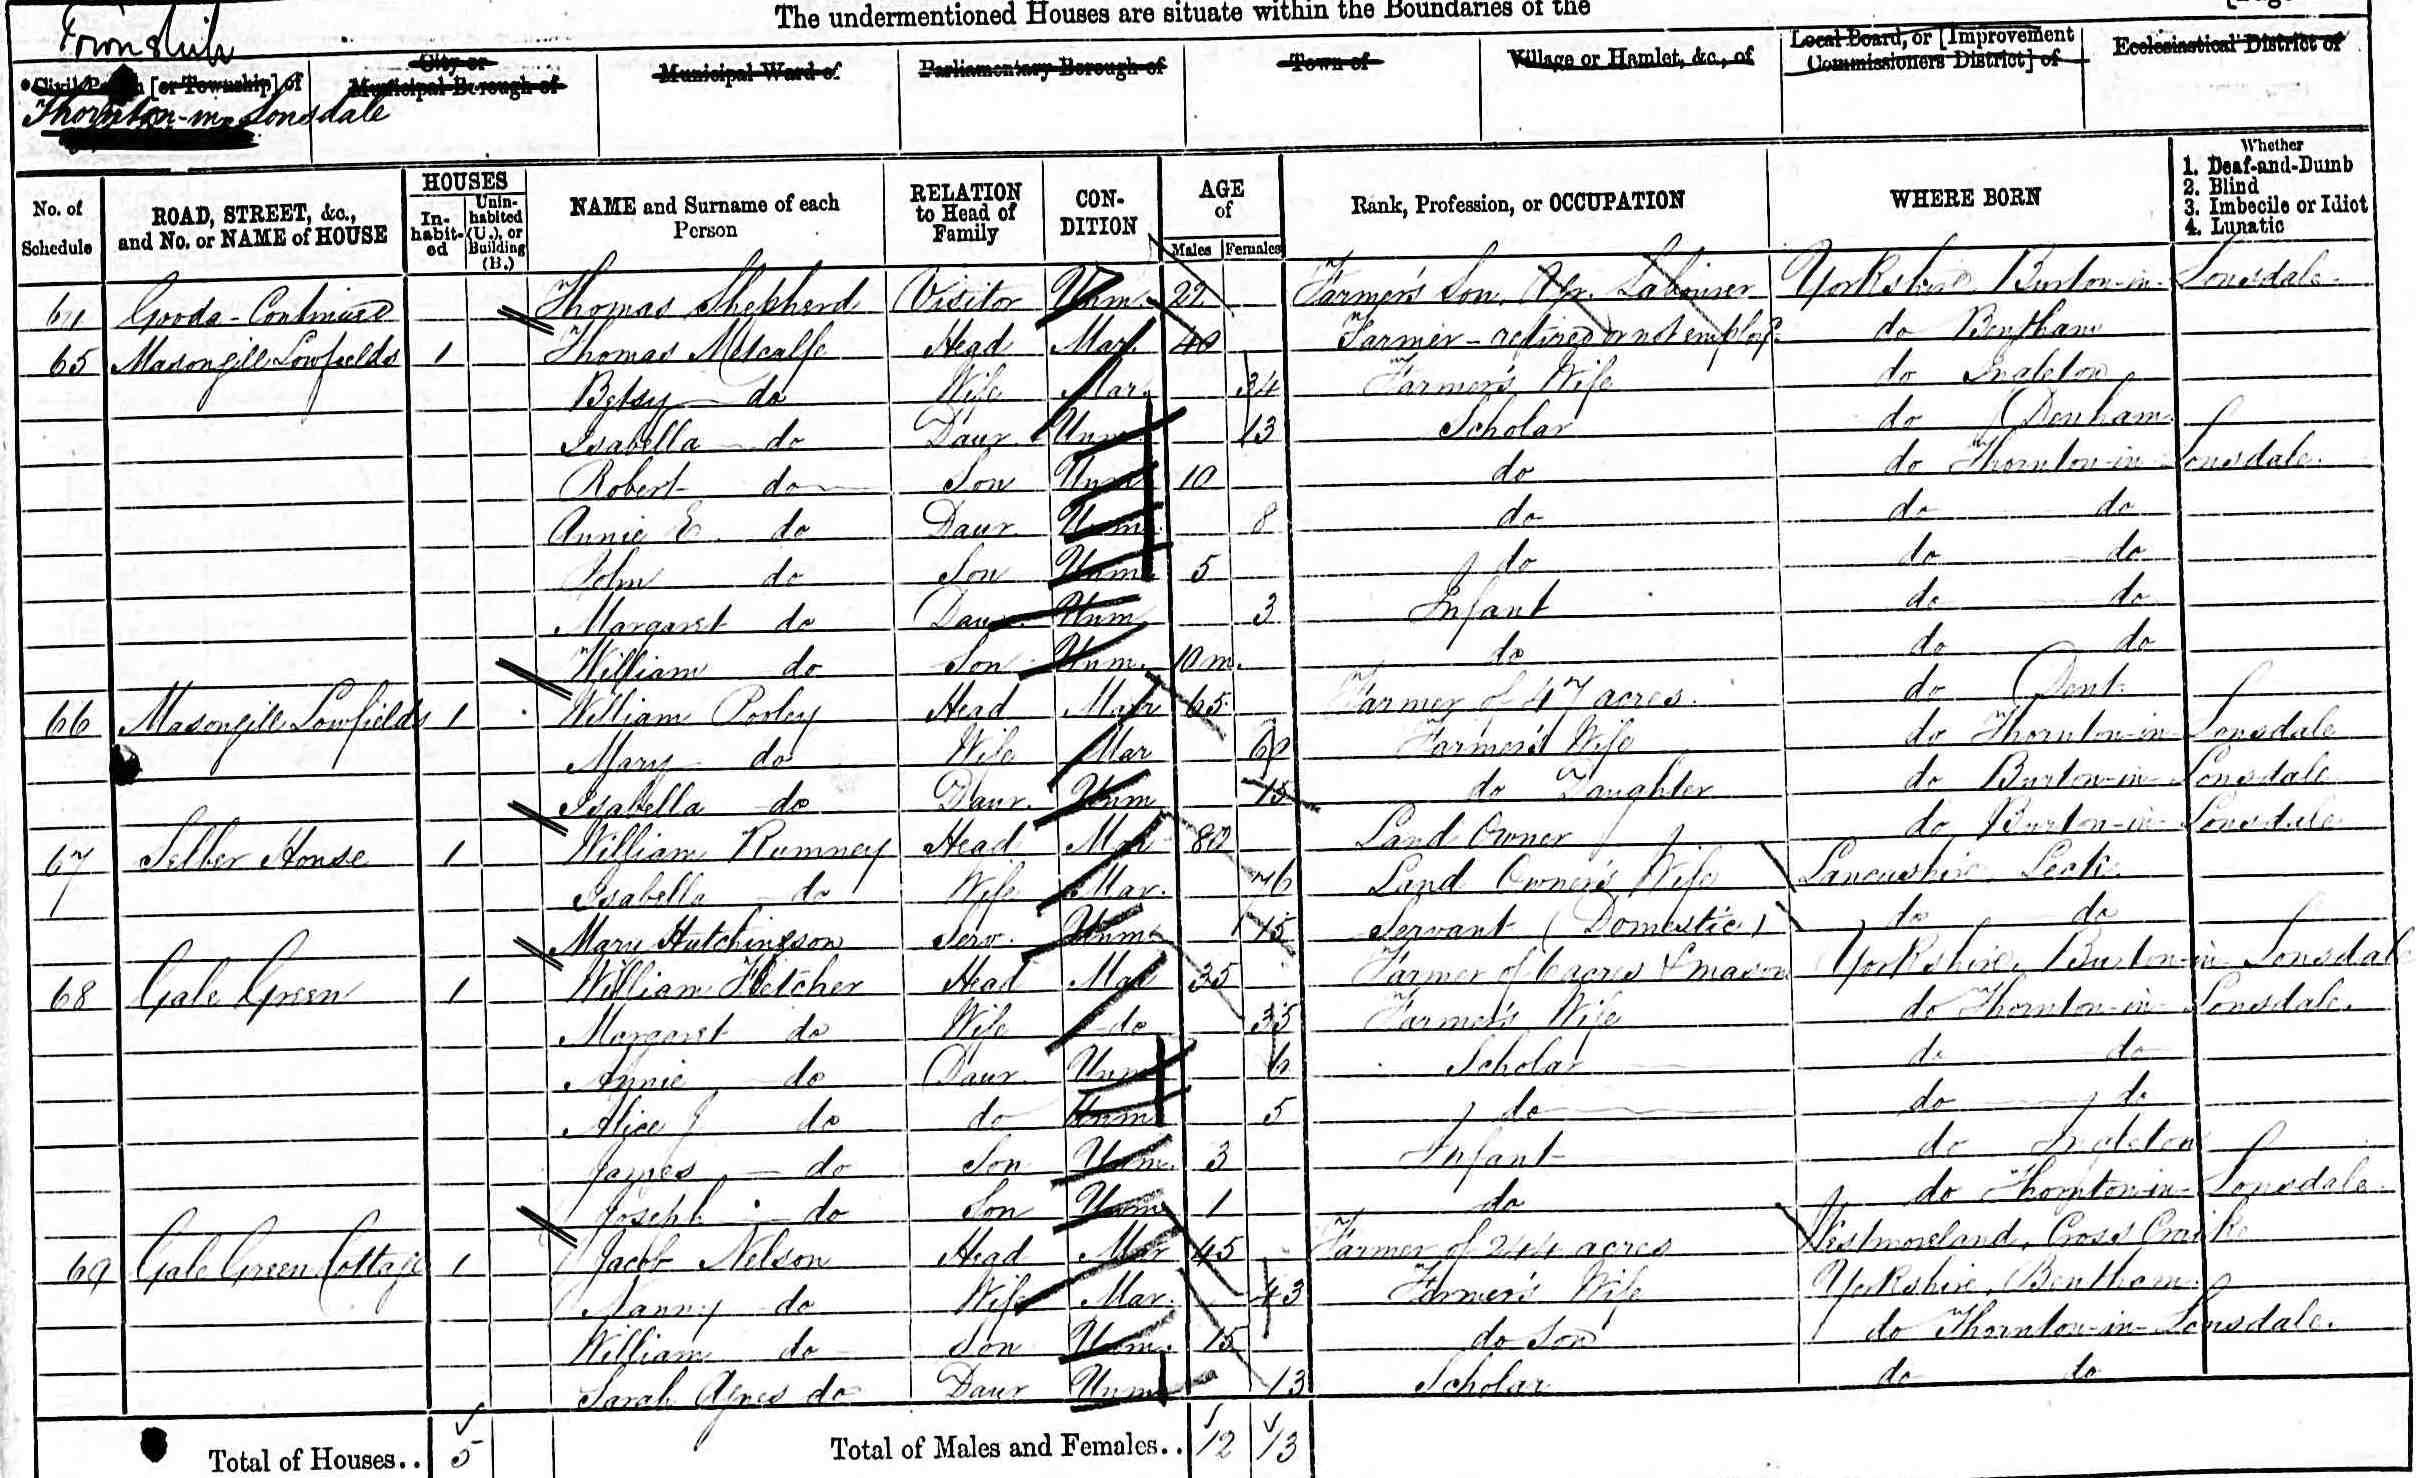 The undermentioned Houses are situate within the Boundaries of the
Township
Civil Parish [or Township] of
City or Municipal Borough of
Municipal Ward of
Parliamentary Borough of
Town of
Village or Hamlet, &c., of
Local Board, or [Improvement Commissioners District] of
Ecclesiastical District of
Thornton-in-Lonsdale
No. of Schedule
ROAD, STREET, &c., and No. or NAME of HOUSE
HOUSES
In-habit-ed
Unin-habited (U.), or Building (B.)
NAME and Surname of each Person
RELATION to Head of Family
CON-DITION
AGE of
Males
Females
Rank, Profession, or OCCUPATION
WHERE BORN
Whether
1. Deaf-and-Dumb
2. Blind
3. Imbecile or Idiot
4. Lunatic
64 Gooda - Continued Thomas Shepherd Visitor Unm. 22 Farmer's Son, Agr. Labourer Yorkshire, Burton-in-Lonsdale
65 Masongill Lowfields 1 Thomas Metcalfe Head Mar. 40 Farmer - retired or not employd. do Bentham
Betsy do Wife Mar. 34 Farmer's Wife do Ingleton
Isabella do Daur. Unm. 13 Scholar do
Robert do Son Unm 10 do do Thornton-in-Lonsdale
Annie E. do Daur. Unm. 8 do do do
John do Son Unm. 5 do do do
Margaret do Daur. Unm 3 Infant do do
William do Son Unm. 10 m. do do do
66 Masongill Lowfields 1 William Pooley Head Mar 65 Farmer of 47 acres. do Dent
Mary do Wife Mar Farmer's Wife do Thornton-in-Lonsdale
Isabella do Daur. Unm 15 do Daughter do Burton-in-Lonsdale
67 Selber House 1 William Rumney Head Mar 80 Land Owner do Burton-in-Lonsdale
Isabella do Wife Mar. 76 Land Owner's Wife Lancashire, Leck
Mary Hutchinson Serv. Unm 15 Servant (Domestic) do do
68 Gale Green 1 William Fletcher Head Mar 35 Farmer of 6 acres & mason Yorkshire, Burton-in-Lonsdale
Margaret do Wife do 35 Farmer's Wife do Thornton-in-Lonsdale.
Annie do Daur. Unm 6 Scholar do do
Alice J do do Unm 5 do do do
James do Son Unm. 3 Infant do Ingleton
Joseph do Son Unm 1 do do Thornton-in-Lonsdale
69 Gale Green Cottage 1 Jacob Nelson Head Mar 45 Farmer of 244 acres Westmoreland, Cross Crake
Nanny do Wife Mar. 43 Farmer's Wife Yorkshire, Bentham
William do Son Unm. 15 do Son do Thornton-in-Lonsdale.
Sarah Agnes do Daur Unm 13 Scholar do do
Total of Houses.. 5
Total of Males and Females.. 12 13